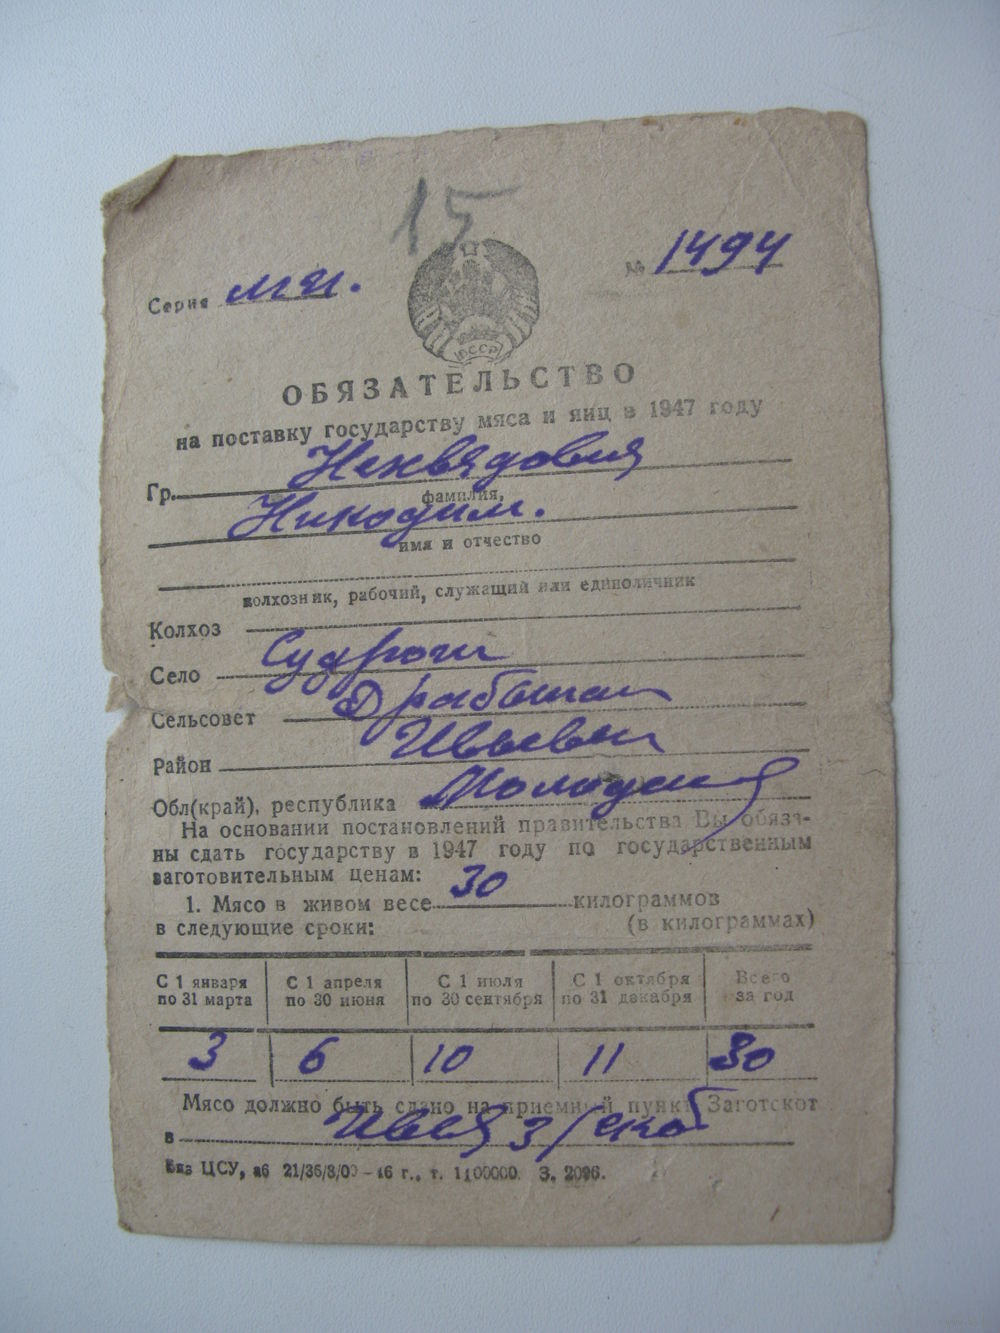 15
Серия МЯ. № 1494
БССР
ОБЯЗАТЕЛЬСТВО
на поставку государству мяса и яиц в 1947 году
Гр.
фамилия,
Никодим.
имя и отчество
колхозник, рабочий, служащий или единоличник
Колхоз
Село Судроги
Сельсовет
Район
Обл(край), республика
На основании постановлений правительства Вы обяза-
ны сдать государству в 1947 году по государственным
заготовительным ценам:
1. Мясо в живом весе 30 килограммов
в следующие сроки: (в килограммах)
С 1 января С 1 апреля С 1 июля С 1 октября Всего
по 31 марта по 30 июня по 30 сентября по 31 декабря за год
3 6 10 11 30
Мясо должно быть сдано на приемный пункт Заготскот
в
ЦСУ, 21/36/8/ г., т. 1100000. З. 2096.